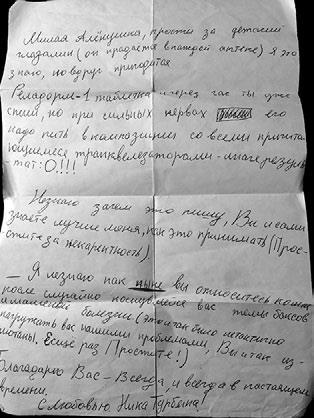 Милая Алёнушка, прости за детский
гладалии (он продаётся в каждой аптеке) я это
знаю, но вдруг пригодится
Реладорм-1 таблетка и через час ты уже
спишь, но при сильных нервах его
надо пить в композиции со всеми причита
ющимися транквелезаторами - иначе резуль
тат: О!!!!
Незнаю зачем это пишу, Вы и сами
знаете лучше меня, как это принимать (Прос-
тите за некарентность)
– Я незнаю как ныне вы относитесь ко мне
после случайно коснувшейся вас темы боксов
и маменой болезни (это и так было нетактично
нагружать вас нашими проблемами, Вы и так из-
мотаны. Еще раз Простите!)
Благодарю Вас - Всегда, и всегда в настоящем
времени.
С Любовью Ника Турбина